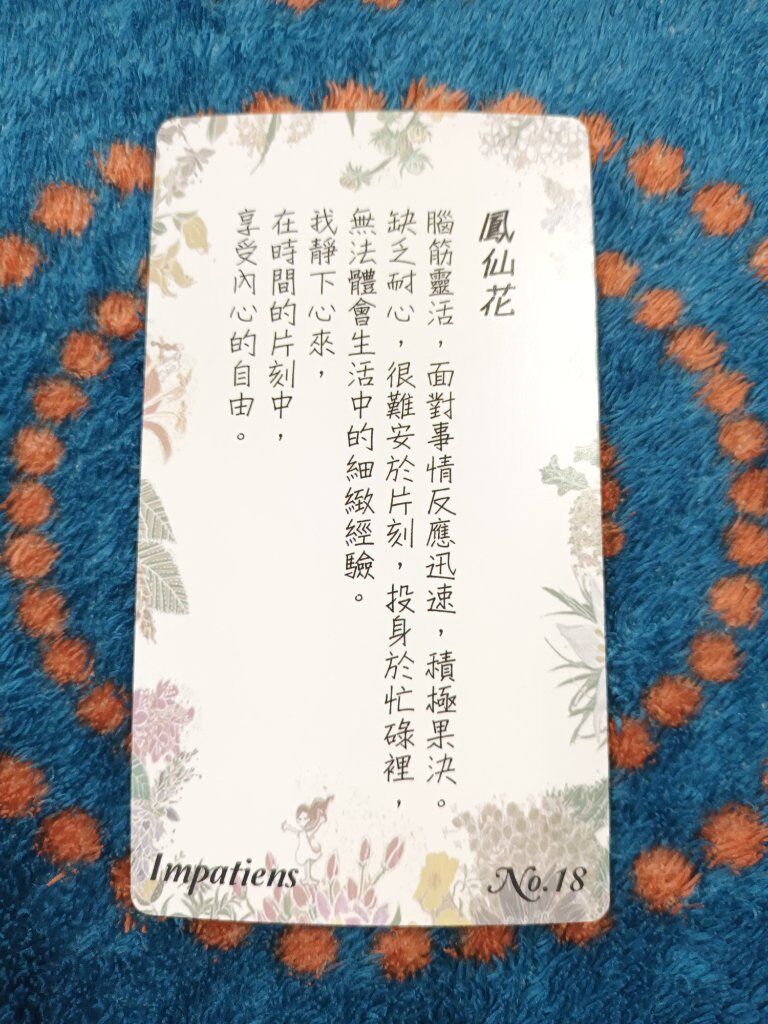 鳳仙花
腦筋靈活，面對事情反應迅速，積極果決。
缺乏耐心，很難安於片刻，投身於忙碌裡，
無法體會生活中的細緻經驗。
我靜下心來，
在時間的片刻中，
享受內心的自由。
Impatiens
No.18